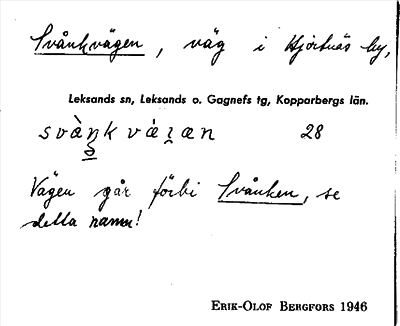 Svånkvägen, väg i Hjortnäs by,
Leksands sn, Leksands o. Gagnefs tg, Kopparbergs län.
28
Vägen går förbi Svånken, se
detta namn!
ERIK-OLOF BERGFORS 1946